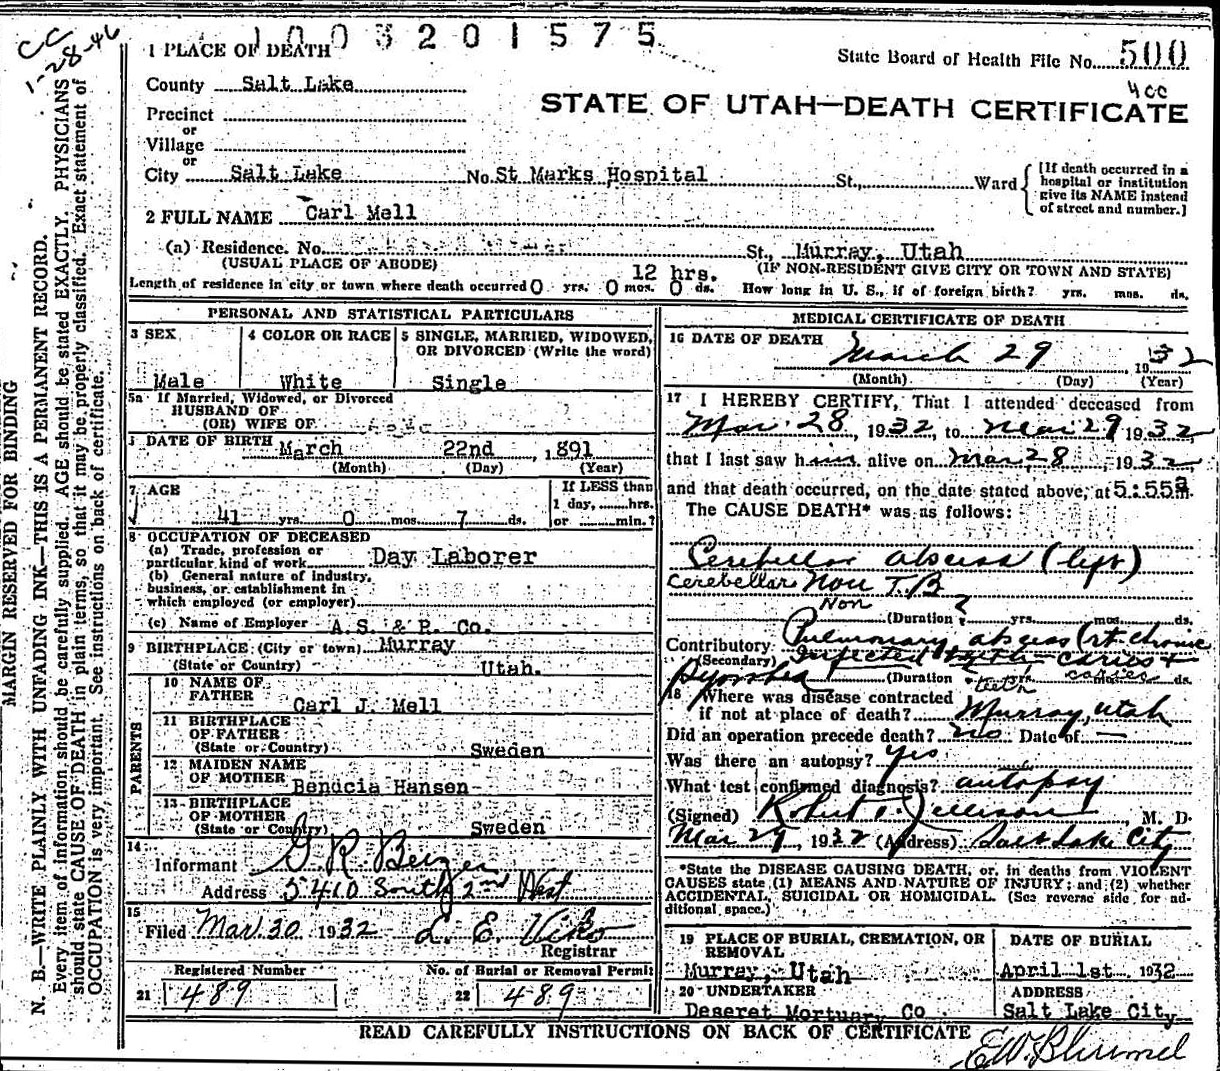 CC
1-28-46
1003201575
1 PLACE OF DEATH
State Board of Health File No. 500
4cc
County Salt Lake
STATE OF UTAH—DEATH CERTIFICATE
Precinct
or
Village
or
City Salt Lake No. St Marks Hospital St., Ward
[If death occurred in a hospital or institution give its NAME instead of street and number.]
2 FULL NAME Carl Mell
(a) Residence. No. St., Murray, Utah
(USUAL PLACE OF ABODE) 12 hrs. (IF NON-RESIDENT GIVE CITY OR TOWN AND STATE)
Length of residence in city or town where death occurred 0 yrs. 0 mos. 0 ds. How long in U. S., if of foreign birth? yrs. mos. ds.
PERSONAL AND STATISTICAL PARTICULARS
3 SEX 4 COLOR OR RACE 5 SINGLE, MARRIED, WIDOWED,
OR DIVORCED (Write the word)
Male White Single
5a If Married, Widowed, or Divorced
HUSBAND OF
(OR) WIFE OF
DATE OF BIRTH March 22nd, 1891
(Month) (Day) (Year)
7 AGE If LESS than
1 day, hrs.
41 yrs. 0 mos. 7 ds. or min.?
8 OCCUPATION OF DECEASED
(a) Trade, profession or
particular kind of work Day Laborer
(b) General nature of Industry,
business, or establishment in
which employed (or employer)
(c) Name of Employer A.S. & R. Co.
9 BIRTHPLACE (City or town) Murray
(State or Country) Utah.
PARENTS
10 NAME OF
FATHER
Carl J. Mell
11 BIRTHPLACE
OF FATHER
(State or Country) Sweden
12 MAIDEN NAME
OF MOTHER
Benucia Hansen
13 BIRTHPLACE
OF MOTHER
(State or Country) Sweden
14
Informant G. R.
Address 5410 South 2nd West
15
Filed Mar. 30 1932 L. E. Viko
Registrar
Registered Number No. of Burial or Removal Permit
21 489 22 489
MEDICAL CERTIFICATE OF DEATH
16 DATE OF DEATH
March 29 1932
(Month) (Day) (Year)
17 I HEREBY CERTIFY, That I attended deceased from
Mar. 28, 1932, to Mar 29 1932
that I last saw him alive on Mar, 28, 1932
and that death occurred, on the date stated above, at 5:55 a m.
The CAUSE DEATH* was as follows:
Cerebellar abscess (left)
Cerebellar Non T.B
Non ?
(Duration yrs. mos. ds.
Contributory Pulmonary abscess (rt chronic
(Secondary) Infected teeth caries +
Pyorrhea (Duration yrs. mos. ds.
teeth caries
18 Where was disease contracted
if not at place of death? Murray, Utah
Did an operation precede death? no Date of —
Was there an autopsy? Yes
What test confirmed diagnosis? autopsy
(Signed) Robert T. Jellison, M. D.
Mar 29, 1932 (Address) Salt Lake City
*State the DISEASE CAUSING DEATH, or, in deaths from VIOLENT
CAUSES state (1) MEANS AND NATURE OF INJURY; and (2) whether
ACCIDENTAL, SUICIDAL OR HOMICIDAL. (See reverse side for ad-
ditional space.)
19 PLACE OF BURIAL, CREMATION, OR
REMOVAL
Murray, Utah
DATE OF BURIAL
April 1st 1932
20 UNDERTAKER
Deseret Mortuary Co
ADDRESS
Salt Lake City
READ CAREFULLY INSTRUCTIONS ON BACK OF CERTIFICATE
MARGIN RESERVED FOR BINDING
N. B.—WRITE PLAINLY WITH UNFADING INK—THIS IS A PERMANENT RECORD.
Every item of information should be carefully supplied. AGE should be stated EXACTLY. PHYSICIANS
should state CAUSE OF DEATH in plain terms, so that it may be properly classified. Exact statement of
OCCUPATION is very important. See instructions on back of certificate.